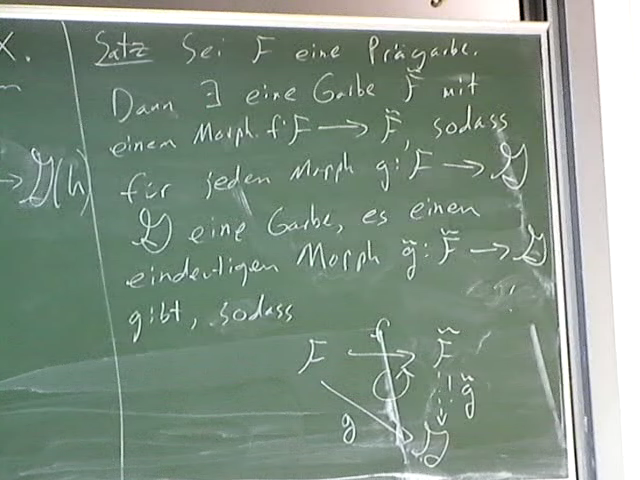 X.
→ 𝒢(h)
Satz Sei F eine Prägarbe.
Dann ∃ eine Garbe F̃ mit
einem Morph. f: F → F̃, sodass
für jeden Morph g: F → 𝒢
𝒢 eine Garbe, es einen
eindeutigen Morph g̃: F̃ → 𝒢
gibt, sodass
f
F → F̃
g̃
g
𝒢